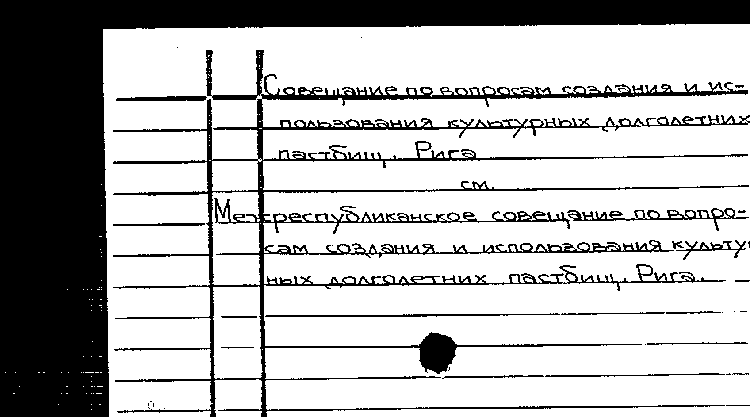 Совещание по вопросам создания и ис-
пользования культурных долголетних
пастбищ. Рига
см.
Межреспубликанское совещание по вопро-
сам создания и использования культу
ных долголетних пастбищ. Рига.